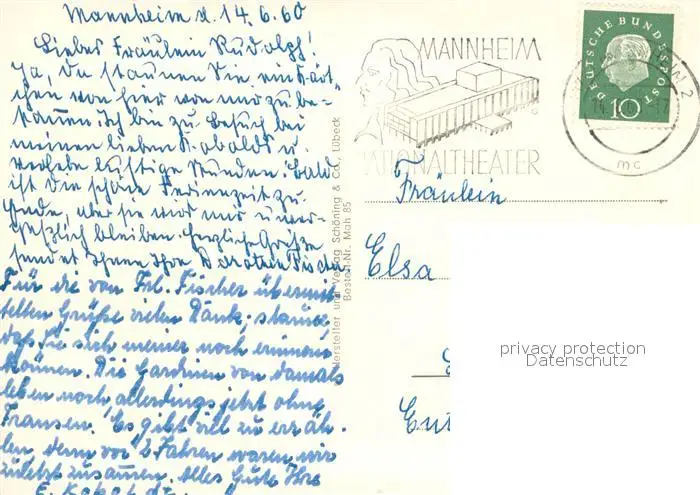 Mannheim d. 14.6.60
Liebes Fräulein Rudolph!
Ja, da staunen Sie ein Kärt-
chen von hier von uns zu be-
kommen. Ich bin zu Besuch bei
meinen lieben Kobolds u.
verlebe lustige Stunden. Bald
ist die schöne Ferienzeit zu
Ende, aber sie wird mir unver-
geßlich bleiben. Herzliche Grüße
sendet Ihnen Ihre Dorothea Fischer
Für die von Frl. Fischer übermit-
telten Grüße vielen Dank; staune,
daß Sie sich meiner noch erinnern
können. Die Gardinen von damals
leben noch allerdings jetzt ohne
Fransen. Es gibt viel zu erzäh-
len, denn vor 2 Jahren waren wir
zuletzt zusammen. Alles Gute Ihre
E.
MANNHEIM
NATIONALTHEATER
DEUTSCHE BUNDESPOST
10
2
mc
Hersteller und Verlag Schöning & Co., Lübeck
Bestell-Nr. Mah 85
Fräulein
Elsa
privacy protection
Datenschutz